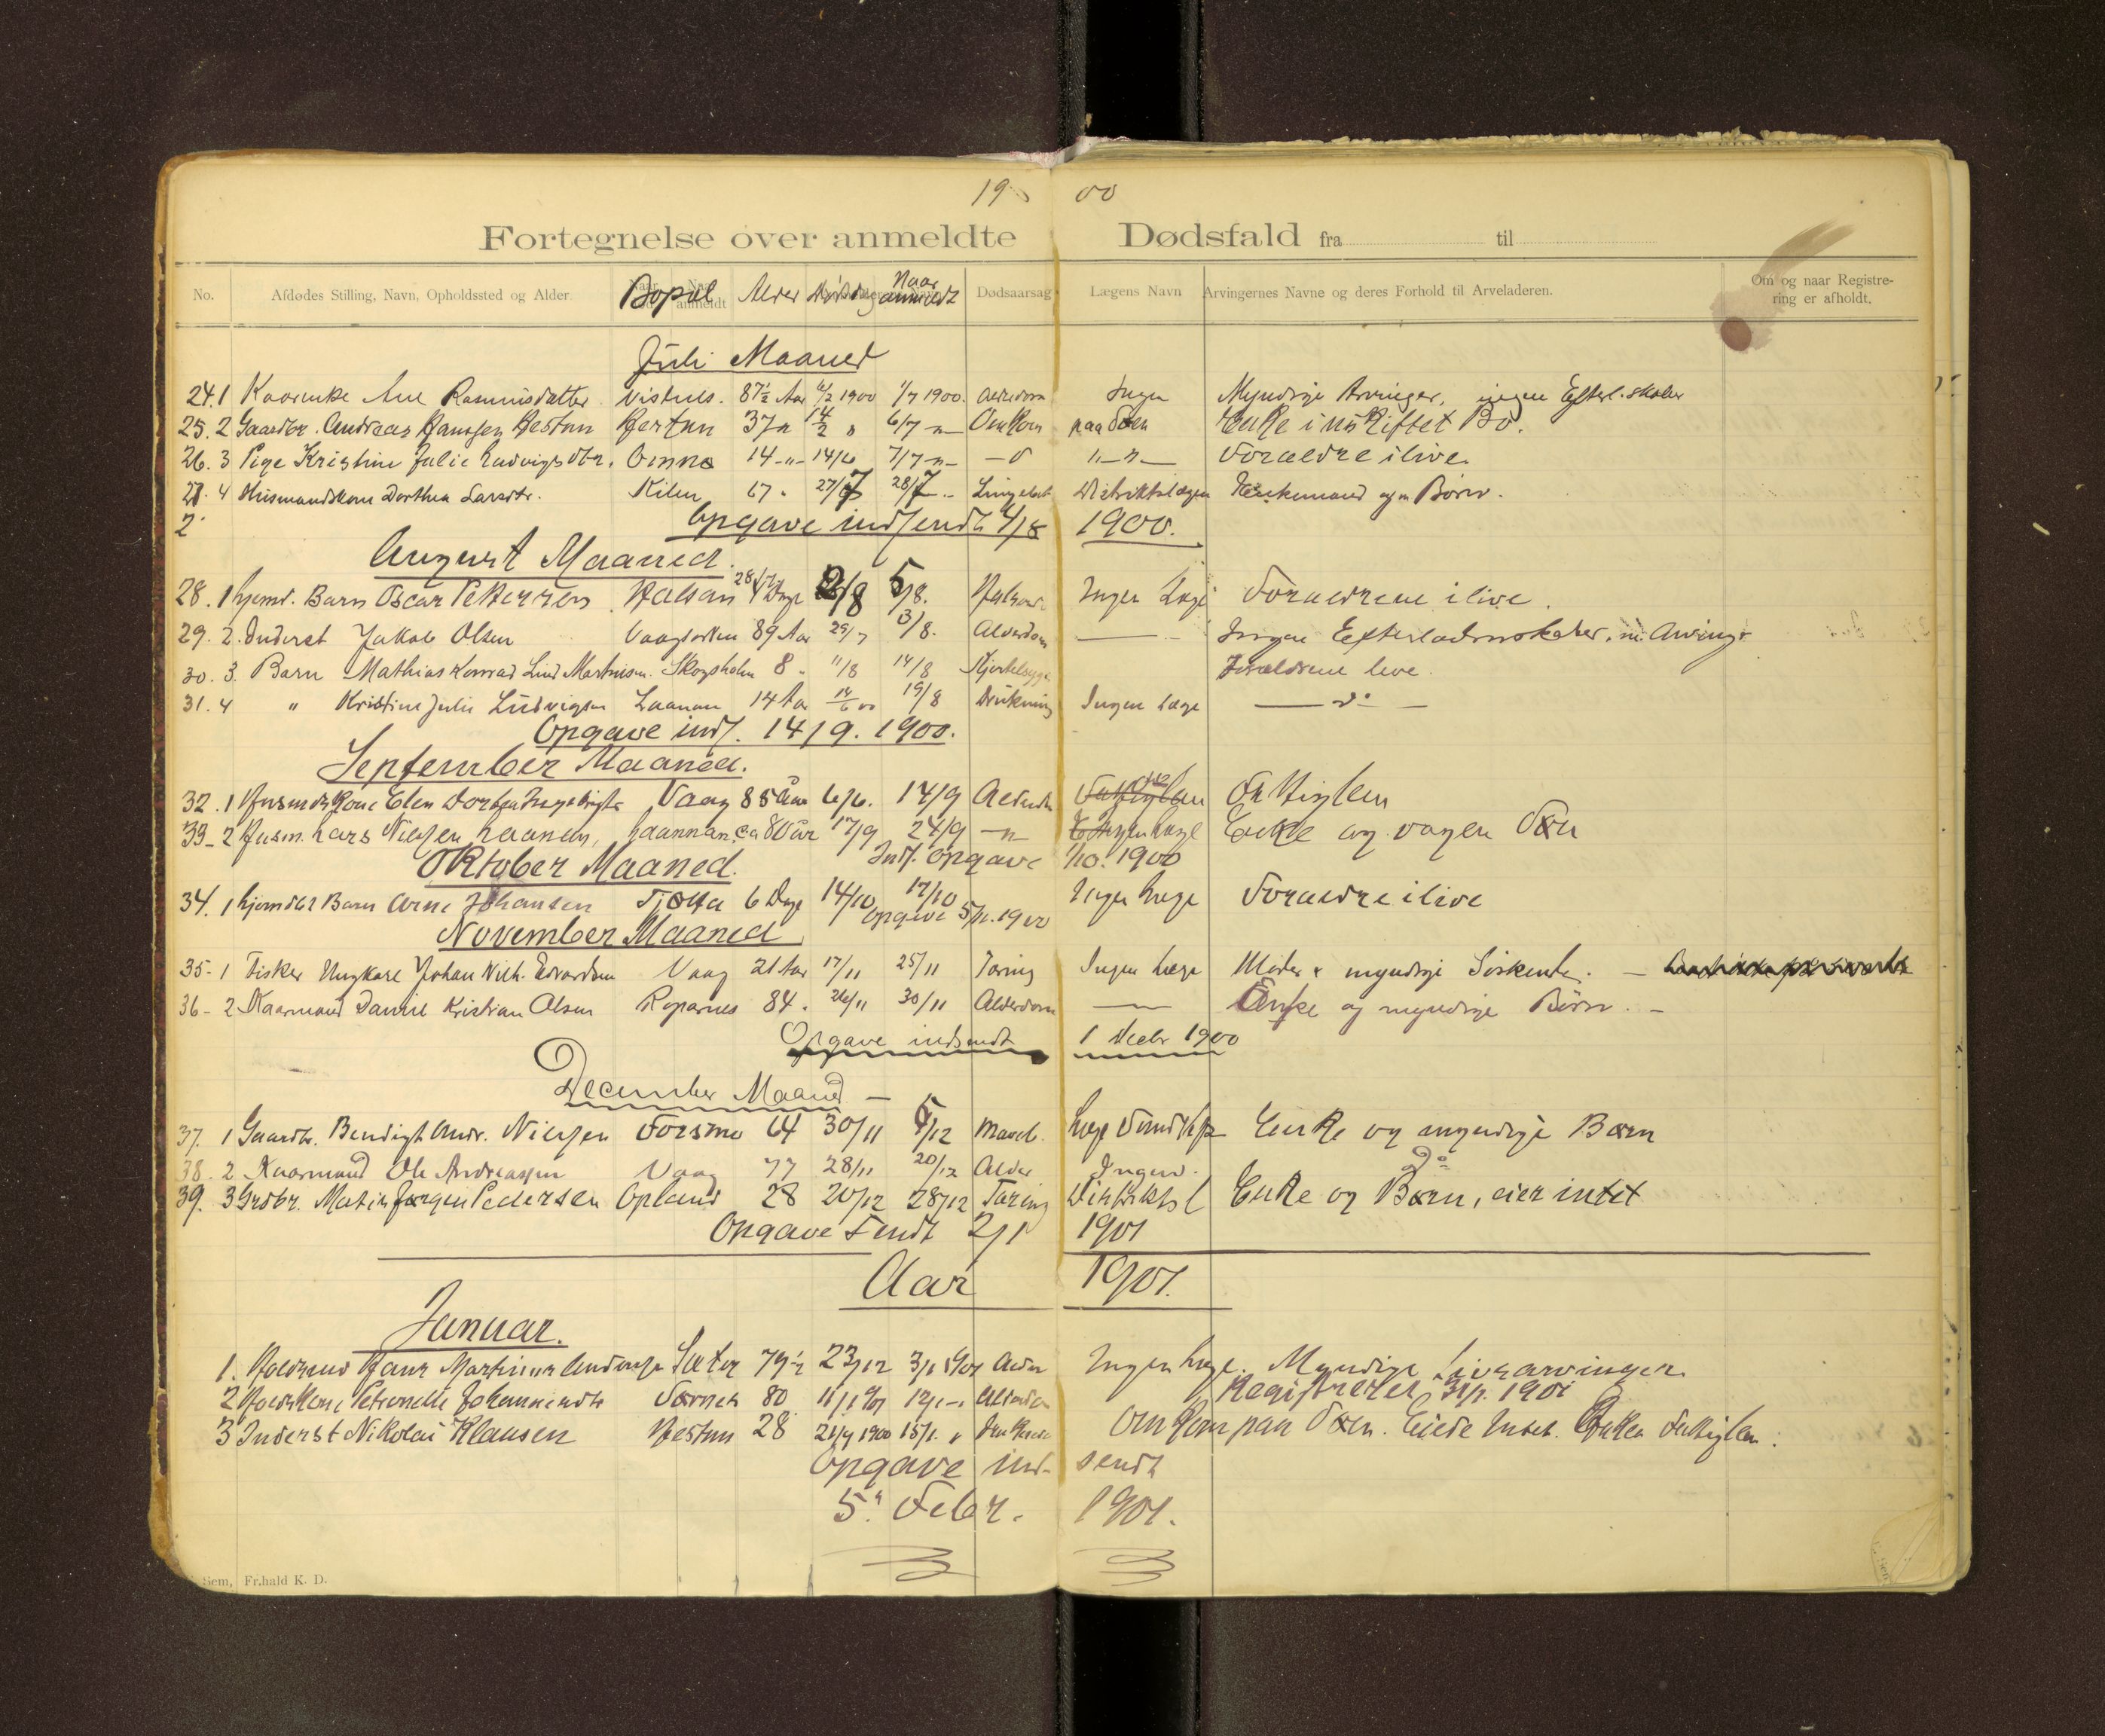 19 00
Fortegnelse over anmeldte Dødsfald fra til
No. Afdødes Stilling, Navn, Opholdssted og Alder. Bopæl Alder Dødsdag Naar anmeldt Dødsaarsag Lægens Navn Arvingernes Navne og deres Forhold til Arveladeren. Om og naar Registrering er afholdt.
Juli Maaned
24. 1 Kaarenke Ane Rasmusdatter Vistnes. 87½ Aar 1900 1/7 1900. Alderdom Ingen Myndige Arvinger, ingen Efterl.skaber
25. 2 Gaardbr. Andreas Hanssen Hestun Hestun 37 " 14/2 " 6/7 " Omkom paa Søen Enke i uskiftet Bo.
26. 3 Pige Kristine Julie Ludvigsdtr. 14 " 14/6 7/7 " — " — Forældre ilive.
27. 4 Husmandskone Dorthea Larsdtr. Kilen 67 " 27/7 28/7 Distriktslægen Enkemand og Børn.
Opgave indsendt 4/8 1900.
August Maaned.
28. 1 hjemd. Barn Oscar Pettersen 28/7 Dage 2/8 5/8. Ingen Læge Forældrene ilive.
29. 2. Inderst Jakob Olsen 89 Aar 29/7 13/8. Alderdom — Ingen Efterladenskaber,
30. 3. Barn Mathias Konrad Lind Martinsen. Skogsholm 8 " 11/8 14/8 Forældrene leve.
31. 4 " Kristine Julie Ludvigsen Laanan 14 Aar 14/6 00 19/8 Drukning Ingen Læge — do —
Opgave inds. 14/9. 1900.
September Maaned.
32. 1 Husmdskone Elen Vaag 85 Aar 6/6. 17/9 Fattiglem
33. 2 Husm. Lars Nielsen Laanan, Laanan, ca 80 år 17/9 24/9 — " Ingen Læge Enke og voxen Søn
Oktober Maaned. Inds. Opgave 1/10. 1900
34. 1 hjemdbt Barn Arne Johansen Tjøtta 6 Dage 14/10 17/10 Ingen Læge Forældre ilive
Opgave 5/11. 1900
November Maaned
35. 1 Fisker Ungkarl Johan Nich. Edvardsen Vaag 21 Aar 17/11 25/11 Tæring Ingen Læge Moder & myndige Søskende. —
36. 2 Kaarmand Daniel Kristian Olsen Roparnes 84 " 26/11 30/11 Alderdom — Enke og myndige Børn. —
Opgave indsendt 1 Decbr 1900
December Maaned —
37. 1 Gaardbr. Bendigt Andr. Nielsen Forsmo 64 30/11 5/12 Læge Enke og myndige Børn
38. 2 Kaarmand Ole Andreassen Vaag 77 28/11 20/12 Alder Ingen. Do
39. 3 Grdbr. Matin Jørgen Pedersen Opland 28 20/12 28/12 Tæring Distriktsl Enke og Børn, eier intet
Opgave sendt 2/1 1901
Aar 1901.
Januar.
1. Hans Martinus Sæter 79½ 23/12 3/1 1901 Alder Ingen Læge. Myndige Livsarvinger.
Registreret 31/1. 1901
2 Petronelle Johannesdtr 80 11/1 01 Alderdom
3 Inderst Nikolai Klausen Hestun 28 21/9 1900 15/1. " Omkom paa Søen. Eiede Intet. Enken Fattiglem.
Opgave ind- sendt
5. Febr. 1901.
Sem, Fr.hald K. D.